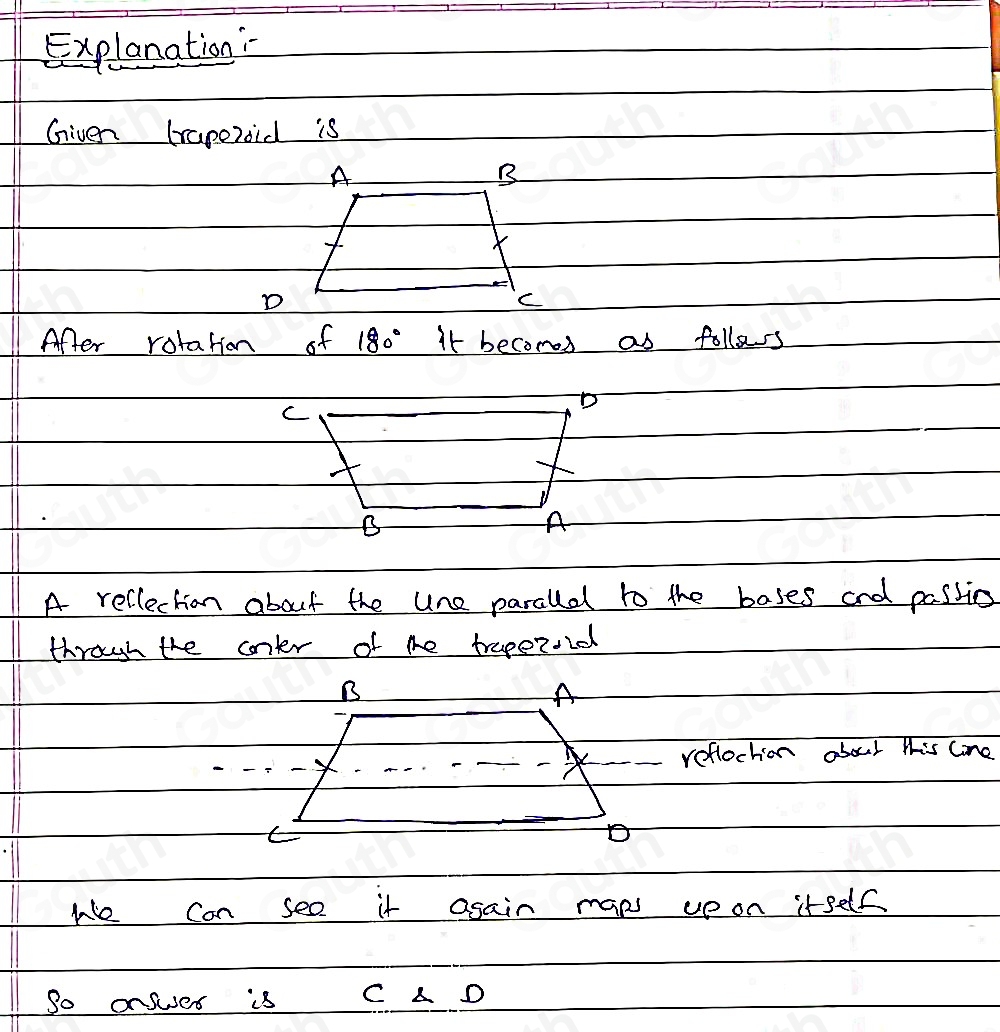 Explanation :-
Given trapezoid is
A B
D C
After rotation of 180° it becomes as follows
C D
B A
A reflection about the line parallel to the bases and passing
through the center of the trapezoid
B A
reflection about this line
C D
We can see it again maps up on itself
So answer is C & D